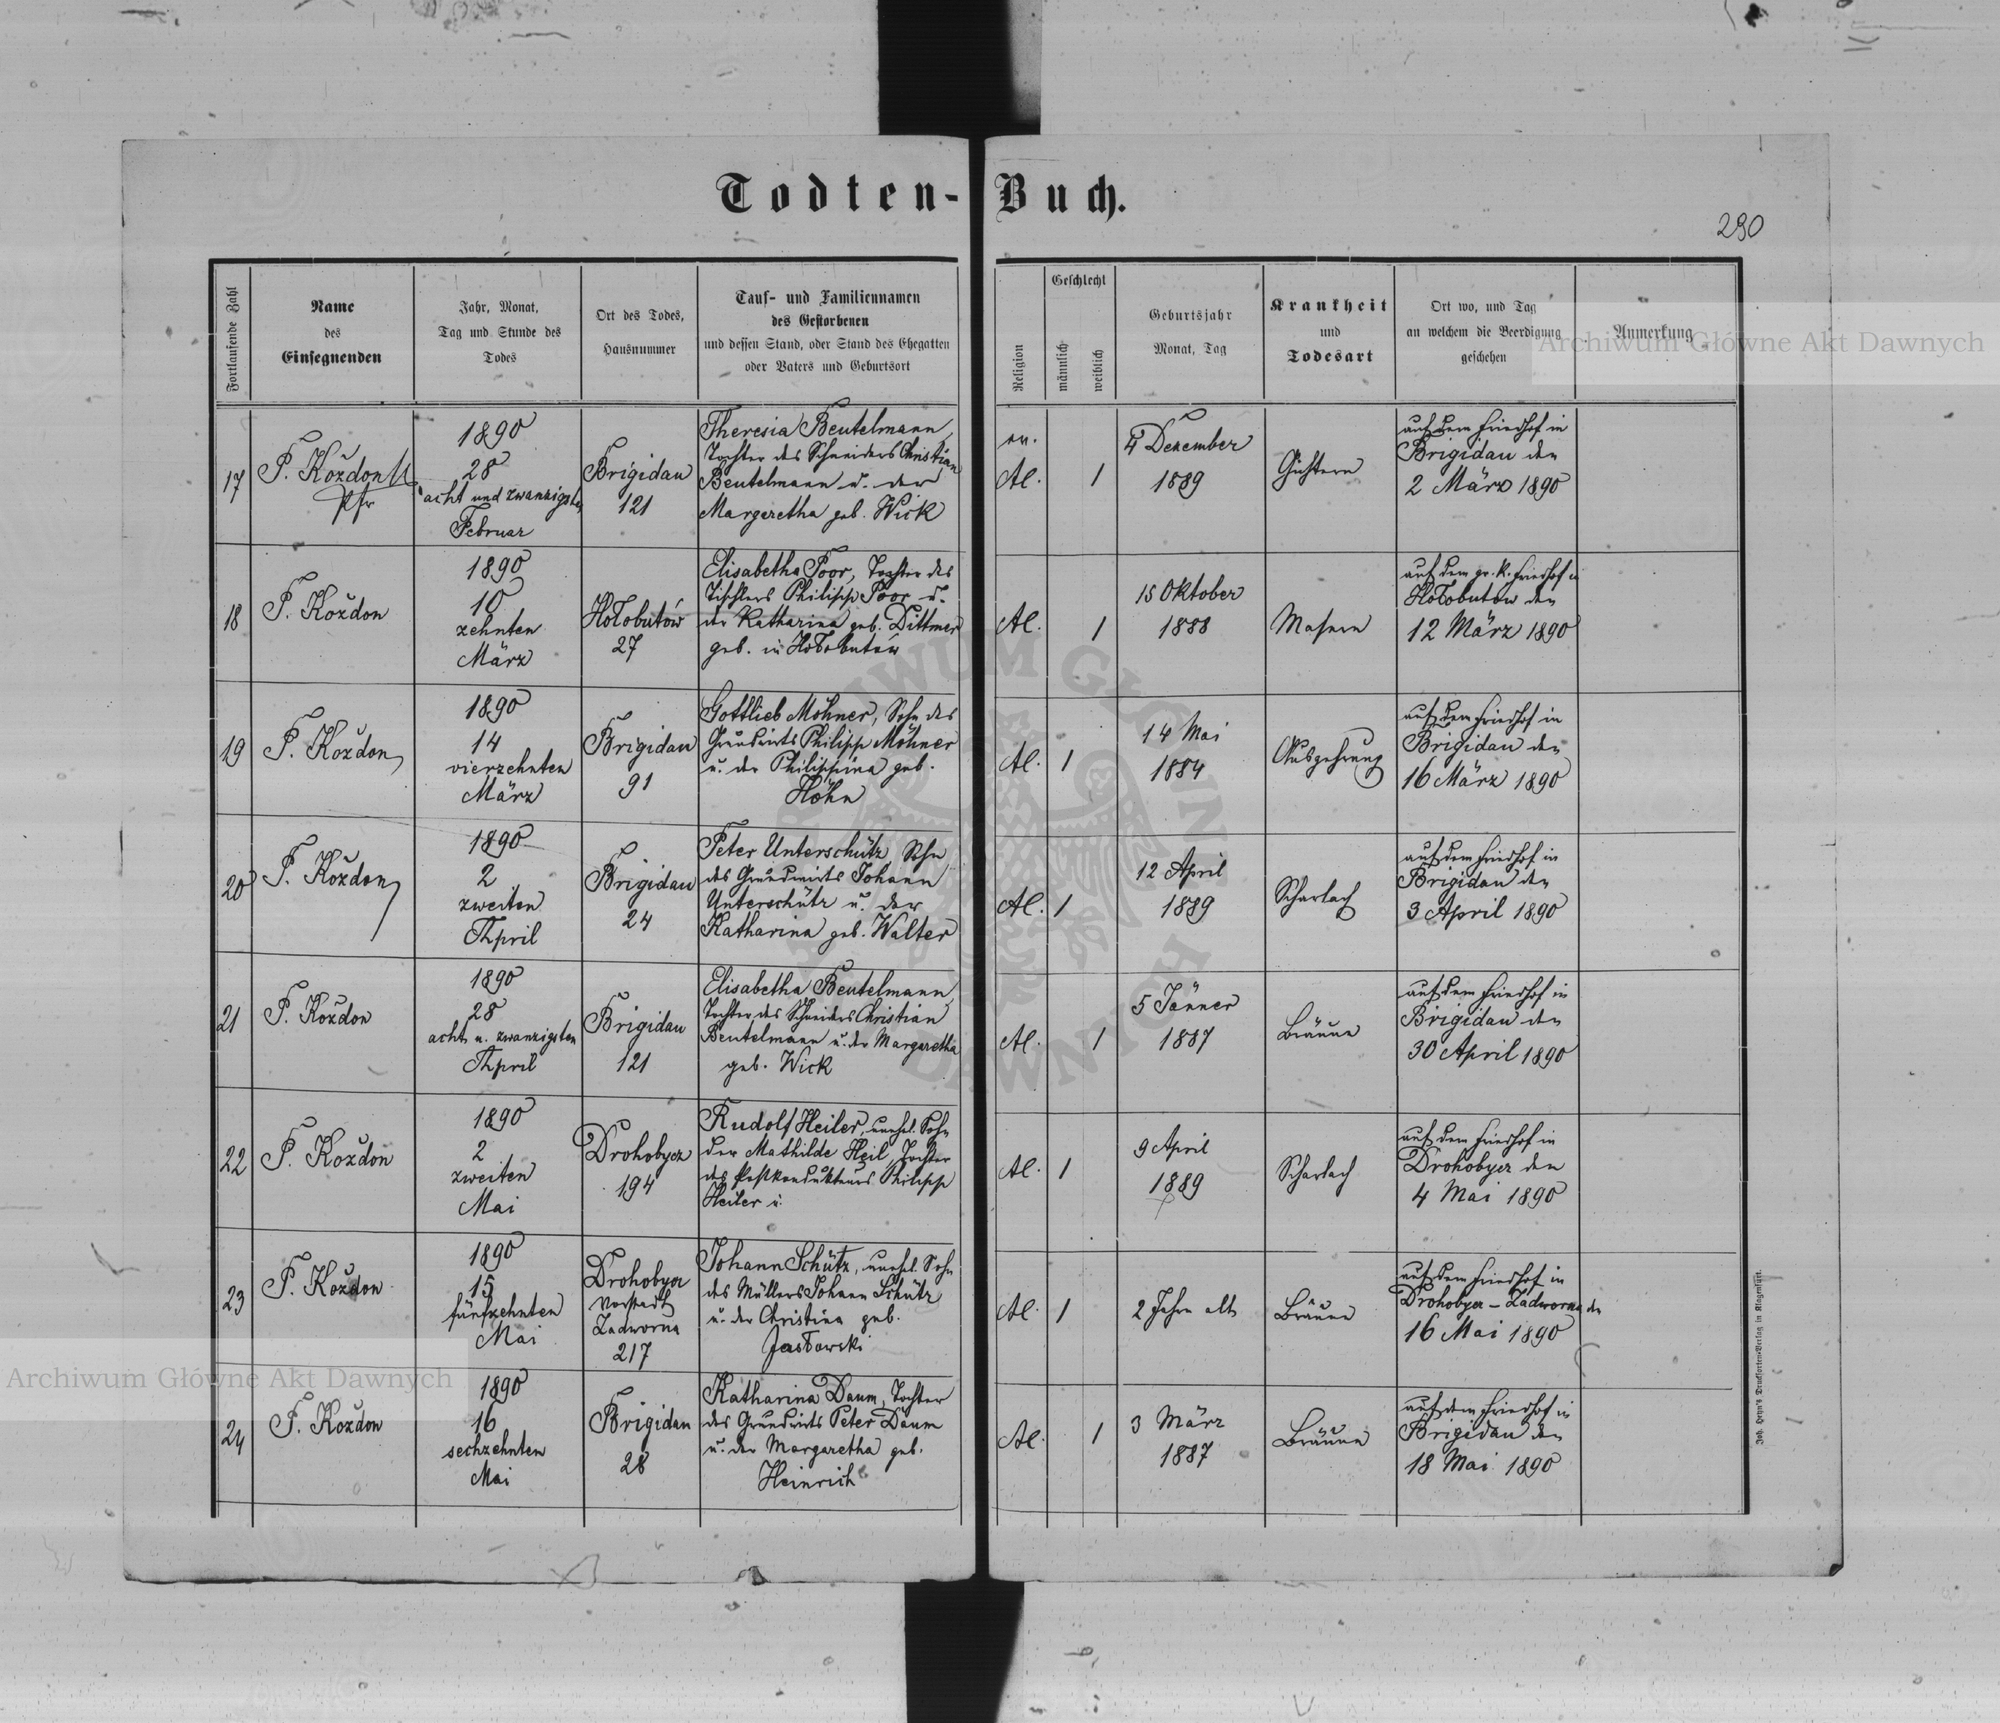 Todten-Buch.
290
Fortlaufende Zahl
Name
des
Einsegnenden
Jahr, Monat,
Tag und Stunde des
Todes
Ort des Todes,
Hausnummer
Tauf- und Familiennamen
des Gestorbenen
und dessen Stand, oder Stand des Ehegatten
oder Vaters und Geburtsort
Religion
Geschlecht
männlich
weiblich
Geburtsjahr
Monat, Tag
Krankheit
und
Todesart
Ort wo, und Tag
an welchem die Beerdigung
geschehen
Anmerkung
17
P. Koždon
Pfr
1890
28
acht und zwanzigsten
Februar
Brigidau
121
Theresia Beutelmann,
Tochter des Schneiders Christian
Beutelmann u. der
Margaretha geb. Wick
ev.
Al.
1
4 Dezember
1889
Gichtern
auf dem Friedhof in
Brigidau den
2 März 1890
18
P. Koždon
1890
10
zehnten
März
Hołobutów
27
Elisabetha Poor, Tochter des
Tischlers Philipp Poor u.
der Katharina geb. Dittmer
geb. in Hołobutów
Al.
1
15 Oktober
1888
Masern
auf dem gr. k. Friedhof in
Hołobutów den
12 März 1890
19
P. Koždon
1890
14
vierzehnten
März
Brigidau
91
Gottlieb Möhner, Sohn des
Grundwirts Philipp Möhner
u. der Philippina geb.
Höhn
Al.
1
14 Mai
1884
Auszehrung
auf dem Friedhof in
Brigidau den
16 März 1890
20
P. Koždon
1890
2
zweiten
April
Brigidau
24
Peter Unterschütz, Sohn
des Grundwirts Johann
Unterschütz u. der
Katharina geb. Walter
Al.
1
12 April
1889
Scharlach
auf dem Friedhof in
Brigidau den
3 April 1890
21
P. Koždon
1890
28
acht u. zwanzigsten
April
Brigidau
121
Elisabetha Beutelmann,
Tochter des Schneiders Christian
Beutelmann u. der Margaretha
geb. Wick
Al.
1
5 Jänner
1887
Bräune
auf dem Friedhof in
Brigidau den
30 April 1890
22
P. Koždon
1890
2
zweiten
Mai
Drohobycz
194
Rudolf Heiler, unehel. Sohn
der Mathilde Heil, Tochter
des Postkondukteurs Philipp
Heiler
Al.
1
9 April
1889
Scharlach
auf dem Friedhof in
Drohobycz den
4 Mai 1890
23
P. Koždon
1890
15
fünfzehnten
Mai
Drohobycz
Vorstadt
Zadworna
217
Johann Schütz, unehel. Sohn
des Müllers Johann Schütz
u. der Christina geb.
Jasłowski
Al.
1
2 Jahre alt
Bräune
auf dem Friedhof in
Drohobycz - Zadworna den
16 Mai 1890
24
P. Koždon
1890
16
sechzehnten
Mai
Brigidau
28
Katharina Daum, Tochter
des Grundwirts Peter Daum
u. der Margaretha geb.
Heinrich
Al.
1
3 März
1887
Bräune
auf dem Friedhof in
Brigidau den
18 Mai 1890
Joh. Heyn's Drucksorten-Verlag in Klagenfurt.
Archiwum Główne Akt Dawnych
Archiwum Główne Akt Dawnych
ARCHIWUM GŁÓWNE AKT DAWNYCH